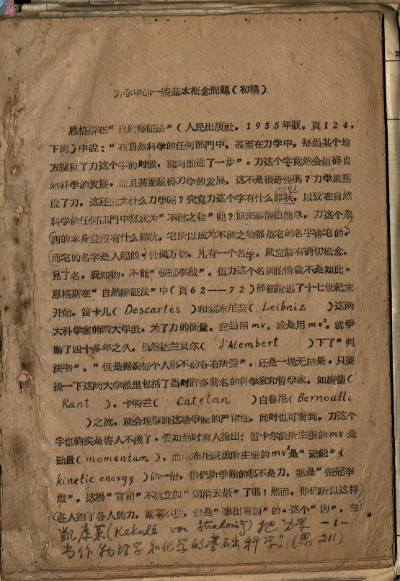 力学中的一些基本概念问题（初稿）
恩格斯在“自然辩证法”（人民出版社，1955年版，頁124，
下同）中說：“在自然科学的任何部門中，甚至在力学中，每当某个地
方摆脱了力这个字的时候，就向前进了一步”。力这个字竟然会阻碍自
然科学的发展，而且甚至阻碍力学的发展，这不是很奇怪嗎？力学里摆
脱了力，这还 为什么力学呢？究竟力这个字有什么 ，以致在自然
科学的任何部門中都成为“不祥之物”呢？原来事情很简单，力这个东
西的本身並没有什么罪状，它所以成为不祥之物都是它的名字害它的
而它的名字是人起的，此謂万物，凡有一个名字，就应該有确切概念，
見了名，就知物，不能“張冠李戴”。但力这个名詞恰恰就不是如此。
恩格斯在“自然辩证法”中（頁62——72）詳細 述了十七世紀末
开始，笛卡儿（Descartes）和萊布尼茨（Leibniz）这两
大科学家的两大学派，为了力的衡量，应当用mv，或是用mv²，就爭
断了四十多年之久，虽然达兰貝尔（d'Alembert）下了“判
决书”，“但是 每个人都不妨各有所爱”，还是一塲无結果。只要
提一下这两大学派里包括了当时許多著名的科学家和哲学家，如康德（
Kant），卡特兰（Catelan）白魯尼（Bernoulli
）之流，就会理会到这場爭論的严重性，同时也可看到，力这个
字也确实是害人不淺了。要如当时有人指出：笛卡尔派所主張的mv是
动量（momentum），而萊布尼茨派所主張的mv²是“动能”（
kinetic energy）的一倍，他們所爭論的都不是力，都是“張冠李
戴”。这場“官司”不就立刻“烟消云散”了嗎！然而，他們所以这样
各人抱了各人的力， ，也是“事出有因”的，这个“因”，在
凱库萊(Kekulé von Stradonitz)把力学 -1-
当作物理学和化学的基础科学。(恩 211)